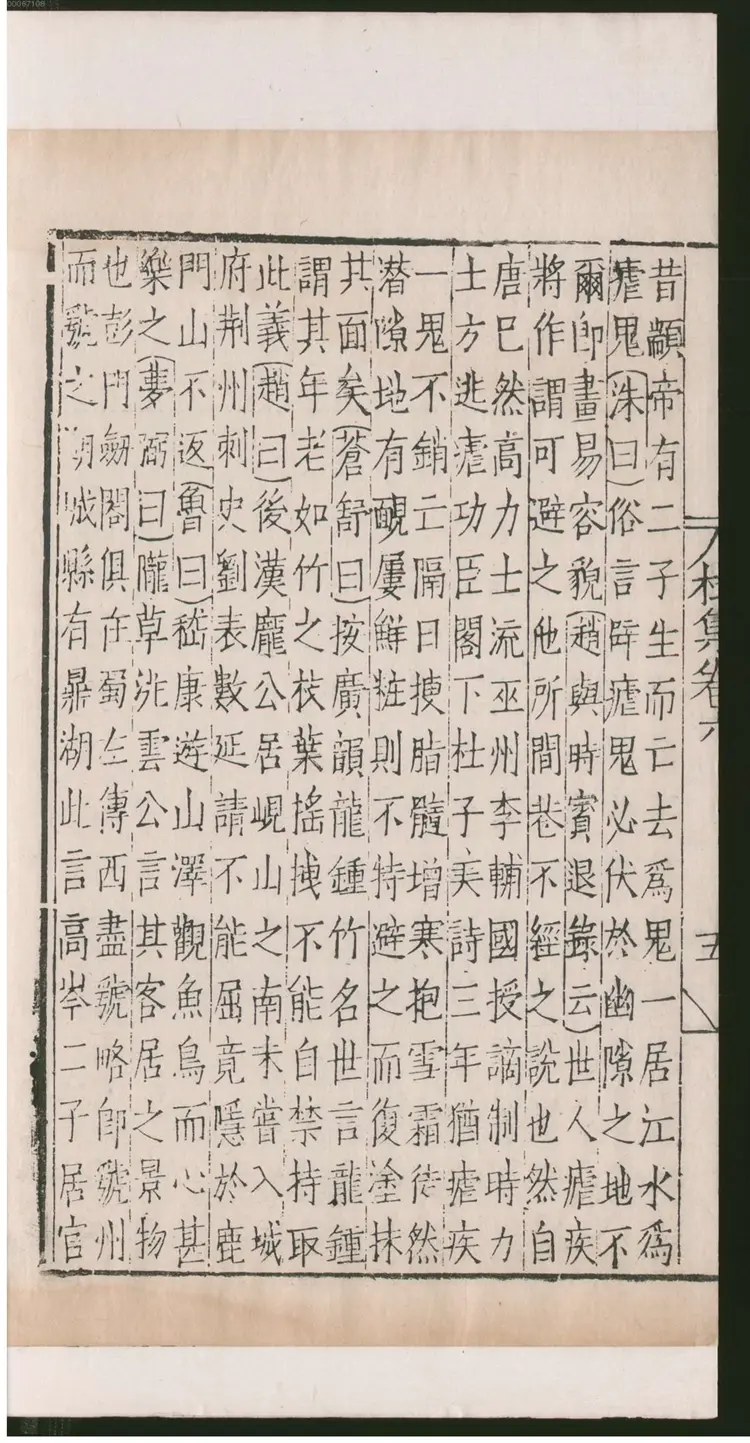 杜集卷六
五
昔顓帝有二子生而亡去爲鬼一居江水爲
瘧鬼(洙曰)俗言辟瘧鬼必伏於幽隙之地不
爾卽畫易容貌(趙與時賓退錄云)世人瘧疾
將作謂可避之他所閭巷不經之說也然自
唐已然高力士流巫州李輔國授謫制時力
士方逃瘧功臣閣下杜子美詩三年猶瘧疾
一鬼不銷亡隔日搜脂髓增寒抱雪霜徒然
潛隙地有靦屢鮮粧則不特避之而復塗抹
其面矣(蒼舒曰)按廣韻龍鍾竹名世言龍鍾
謂其年老如竹之枝葉搖拽不能自禁持取
此義(趙曰)後漢龐公居峴山之南未嘗入城
府荆州刺史劉表數延請不能屈竟隱於鹿
門山不返(魯曰)嵇康遊山澤觀魚鳥而心甚
樂之(夢弼曰)隴草洮雲公言其客居之景物
也彭門劒閣俱在蜀左傳西盡虢略卽虢州
而虢之湖城縣有鼎湖此言高岑二子居官